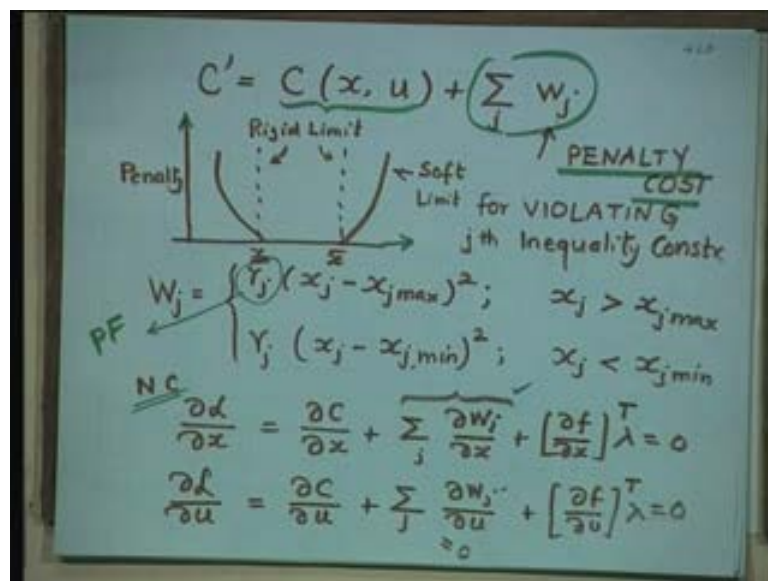 C' = C (x, u) + ∑_j w_j
Rigid Limit
Penalty
Soft
Limit
PENALTY
COST
for VIOLATING
jth Inequality Constx
W_j = { γ_j (x_j − x_jmax)² ; x_j > x_jmax
γ_j (x_j − x_j,min)² ; x_j < x_jmin
PF
NC
∂L/∂x = ∂C/∂x + ∑_j ∂w_j/∂x + [∂f/∂x]^T λ = 0
∂L/∂u = ∂C/∂u + ∑_j ∂w_j/∂u + [∂f/∂u]^T λ = 0
= 0